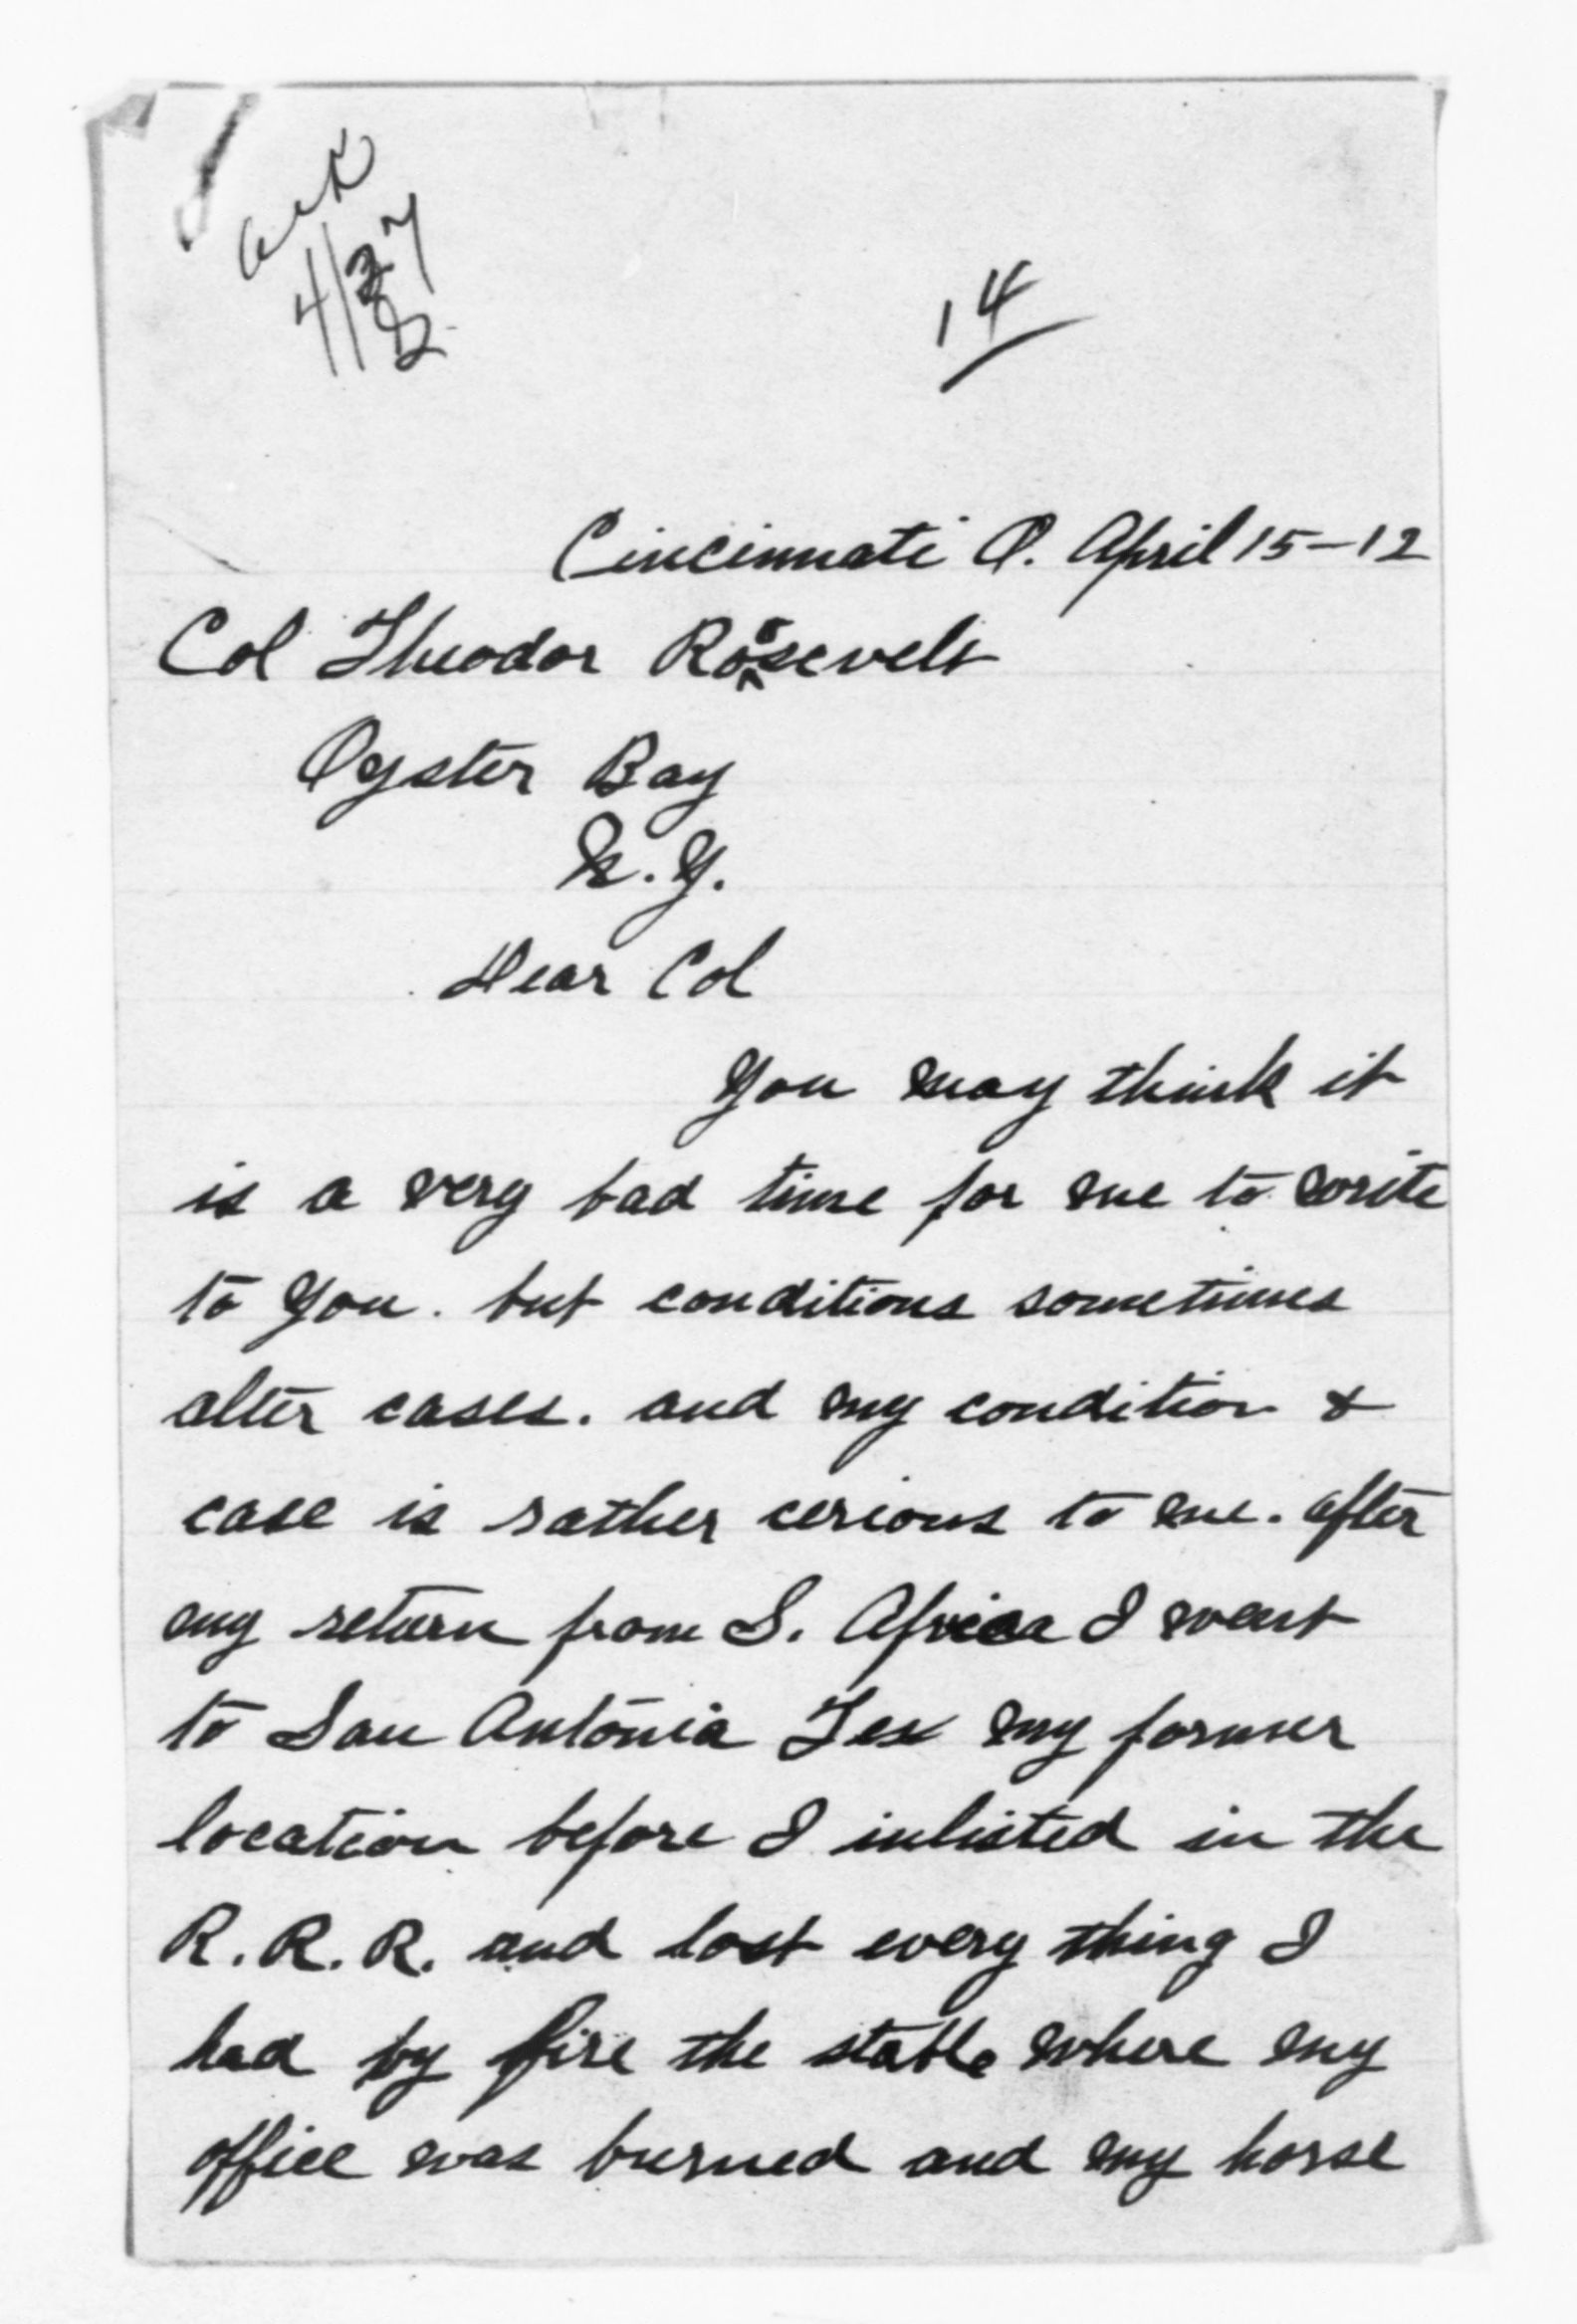 ack
4/27
14
Cincinnati O. April 15-12
Col Theodor Roosevelt
Oyster Bay
N.Y.
Dear Col
You may think it
is a very bad time for me to write
to You. but conditions sometimes
alter cases. and my condition &
case is rather cerious to me. after
my return from S. Africa I went
to San Antonia Tex my former
location before I inlisted in the
R.R.R. and lost every thing I
had by fire the stable where my
office was burned and my horse